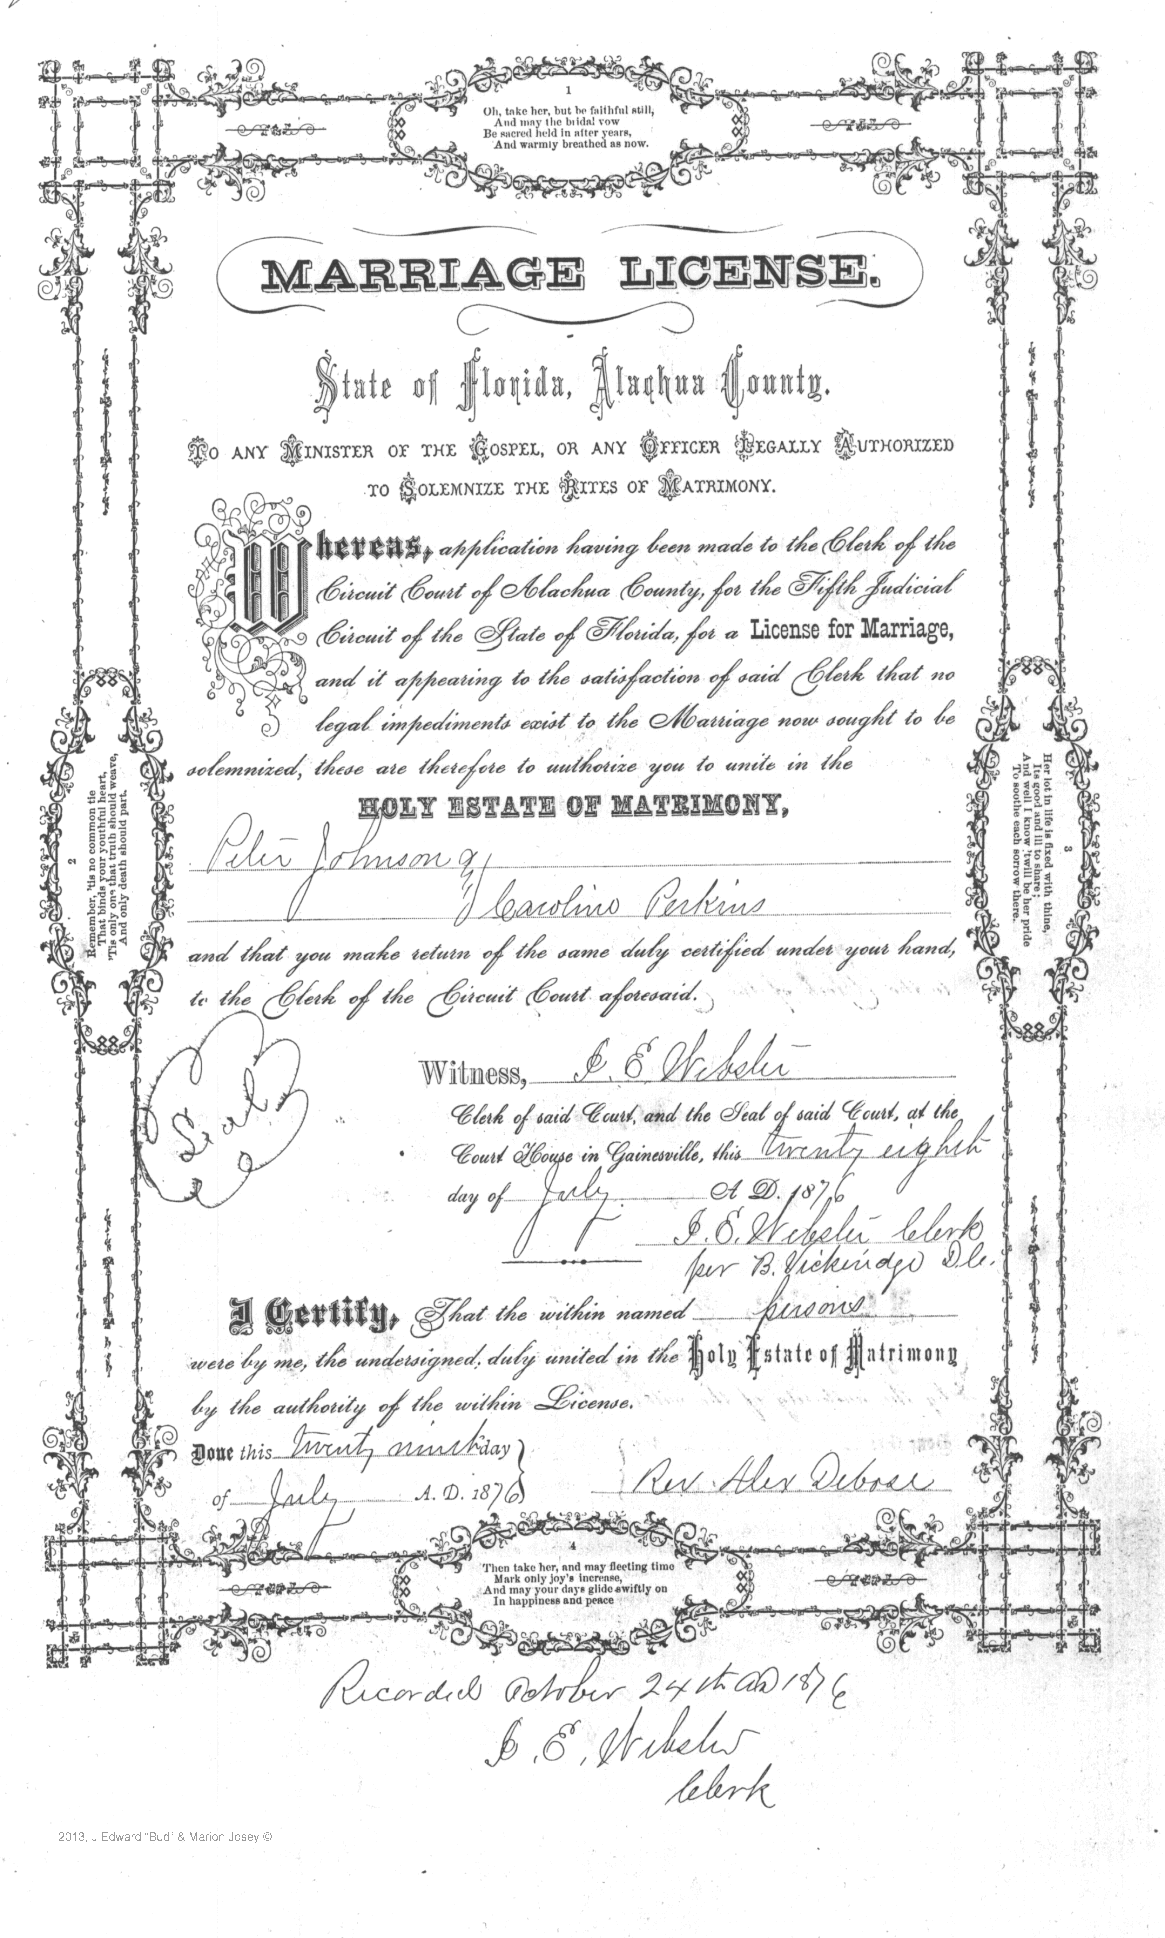 1
Oh, take her, but be faithful still,
And may the bridal vow
Be sacred held in after years,
And warmly breathed as now.
MARRIAGE LICENSE.
State of Florida, Alachua County.
TO ANY MINISTER OF THE GOSPEL, OR ANY OFFICER LEGALLY AUTHORIZED
TO SOLEMNIZE THE RITES OF MATRIMONY.
Whereas, application having been made to the Clerk of the
Circuit Court of Alachua County, for the Fifth Judicial
Circuit of the State of Florida, for a License for Marriage,
and it appearing to the satisfaction of said Clerk that no
legal impediments exist to the Marriage now sought to be
solemnized, these are therefore to authorize you to unite in the
HOLY ESTATE OF MATRIMONY,
Peter Johnson &
Caroline Perkins
and that you make return of the same duly certified under your hand,
to the Clerk of the Circuit Court aforesaid.
2
Remember, 'tis no common tie
That binds your youthful heart,
'Tis only one that truth should weave,
And only death should part.
3
Her lot in life is fixed with thine,
Its good and ill to share;
And well I know 'twill be her pride
To soothe each sorrow there.
Seal
Witness, J. E. Webster
Clerk of said Court, and the Seal of said Court, at the
Court House in Gainesville, this twenty eighth
day of July A. D. 1876
J. E. Webster Clerk
per B. D.C.
I Certify, That the within named persons
were by me, the undersigned, duly united in the Holy Estate of Matrimony
by the authority of the within License.
Done this twenty ninth day
of July A. D. 1876
Rev Alex Debose
4
Then take her, and may fleeting time
Mark only joy's increase,
And may your days glide swiftly on
In happiness and peace
Recorded October 24th AD 1876
J. E. Webster
Clerk
2013, J Edward "Bud" & Marion Josey ©